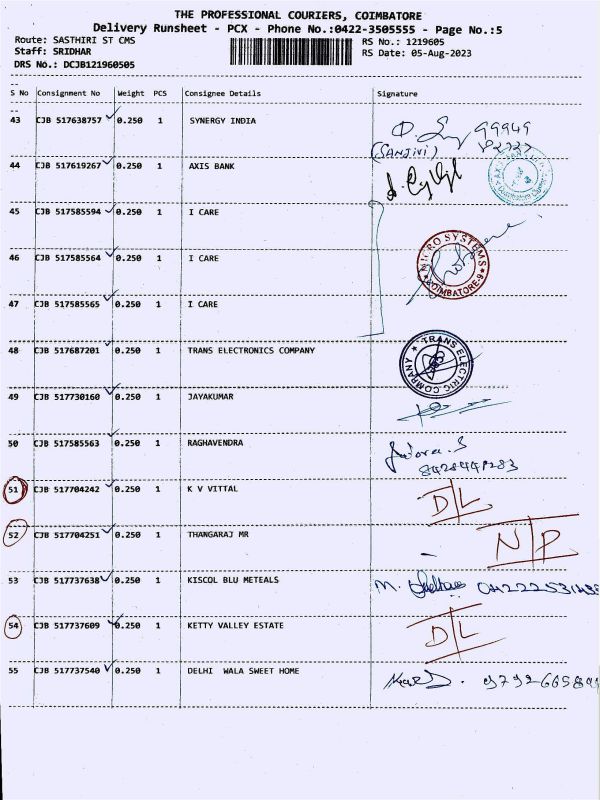 THE PROFESSIONAL COURIERS, COIMBATORE
Delivery Runsheet - PCX - Phone No.:0422-3505555 - Page No.:5
Route: SASTHIRI ST CMS RS No.: 1219605
Staff: SRIDHAR RS Date: 05-Aug-2023
DRS No.: DCJB121960505
S No Consignment No Weight PCS Consignee Details Signature
43 CJB 517638757 0.250 1 SYNERGY INDIA 99949
(SANJIVI)
44 CJB 517619267 0.250 1 AXIS BANK
45 CJB 517585594 0.250 1 I CARE
46 CJB 517585564 0.250 1 I CARE MICRO SYSTEMS COIMBATORE-9
47 CJB 517585565 0.250 1 I CARE
48 CJB 517687201 0.250 1 TRANS ELECTRONICS COMPANY TRANS ELECTRIC COMPANY
49 CJB 517730160 0.250 1 JAYAKUMAR
50 CJB 517585563 0.250 1 RAGHAVENDRA
51 CJB 517704242 0.250 1 K V VITTAL D/L
52 CJB 517704251 0.250 1 THANGARAJ MR N/P
53 CJB 517737638 0.250 1 KISCOL BLU METEALS M.
54 CJB 517737609 0.250 1 KETTY VALLEY ESTATE D/L
55 CJB 517737540 0.250 1 DELHI WALA SWEET HOME